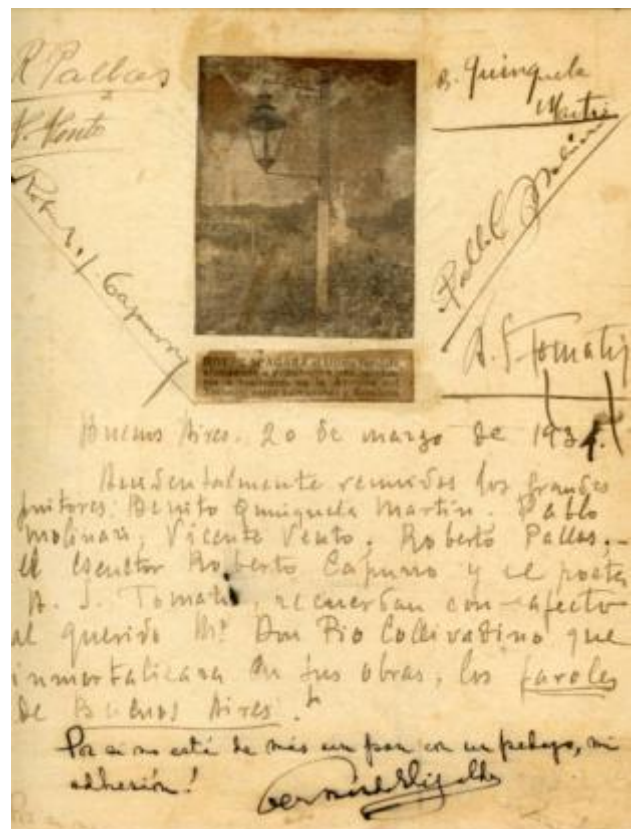 R Pallas
V. Vento
B. Quinquela
Martin
Pablo C Molinari
Roberto Capurro
A. J. Tomatis
Buenos Aires. 20 de marzo de 193
Accidentalmente reunidos los grandes
pintores: Benito Quinquela Martin. Pablo
Molinari, Vicente Vento. Roberto Pallas,
el escultor Roberto Capurro y el poeta
A. J. Tomatis, recuerdan con afecto
al querido Mº Don Pio Collivadino que
inmortalizara en sus obras, los faroles
de Buenos Aires.
Por si no está de más un pan con un pedazo, mi
adhesión!